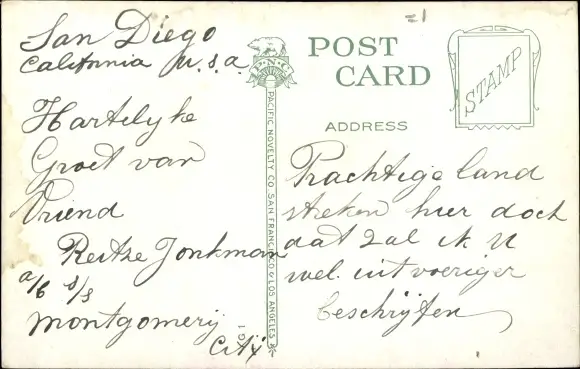 San Diego
California U.S.a.
Hartelyke
Groet van
Vriend
Reitze Jonkman
a/b s/s
Montgomery
City
POST
CARD
P.N.C
STAMP
ADDRESS
PACIFIC NOVELTY CO. SAN FRANCISCO & LOS ANGELES
101
Prachtige land
streken hier doch
dat zal ik U
wel uitvoeriger
beschrijten